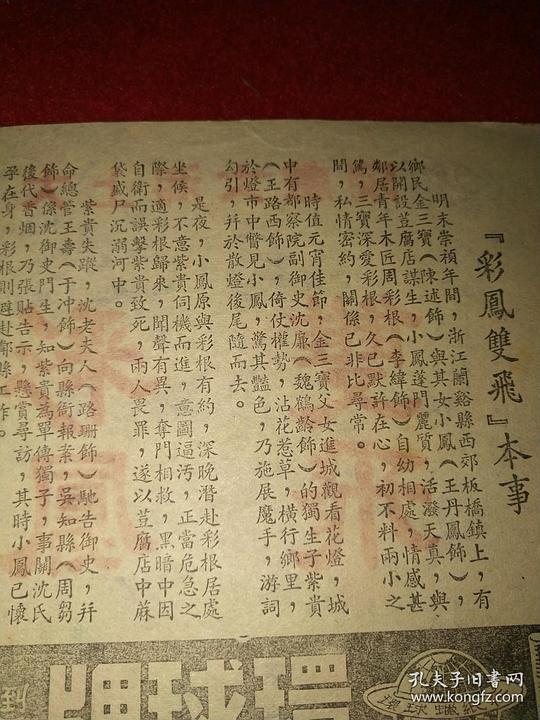 『彩鳳雙飛』本事
明末崇禎年間，浙江蘭谿縣西郊板橋鎮上，有
鄉民金三寶（陳述飾）與其女小鳳（王丹鳳飾），
以開設荳腐店謀生，小鳳蓬門麗質，活潑天真，與
鄰居青年木匠周彩根（李緯飾）自幼相處，情感甚
篤，三寶深愛彩根，久已默許在心，初不料兩小之
間，私情密約，關係已非比尋常。
時值元宵佳節，金三寶父女進城觀看花燈，城
中有都察院副御史沈廉（魏鶴齡飾）的獨生子紫貴
（王路西飾），倚仗權勢，沾花惹草，橫行鄉里，
於燈市中瞥見小鳳，驚其豔色，乃施展魔手，游詞
勾引，幷於散燈後尾隨而去。
是夜，小鳳原與彩根有約，深晚潛赴彩根居處
坐候，不意紫貴伺機而進，意圖逼污，正當危急之
際，適彩根歸來，聞聲有異，奪門相救，黑暗中因
自衛而誤擊紫貴致死，兩人畏罪，遂以荳腐店中蔴
袋盛尸沉溺河中。
紫貴失蹤，沈老夫人（路珊飾）馳告御史，幷
命總管王壽（于冲飾）向縣衙報案，吳知縣（周芻
飾）係沈御史門生，知紫貴為單傳獨子，事關沈氏
後代香烟，乃張貼告示，懸賞尋訪，其時小鳳已懷
孕在身，彩根則避赴鄰縣工作。
環球牌
環球
孔夫子旧书网
www.kongfz.com